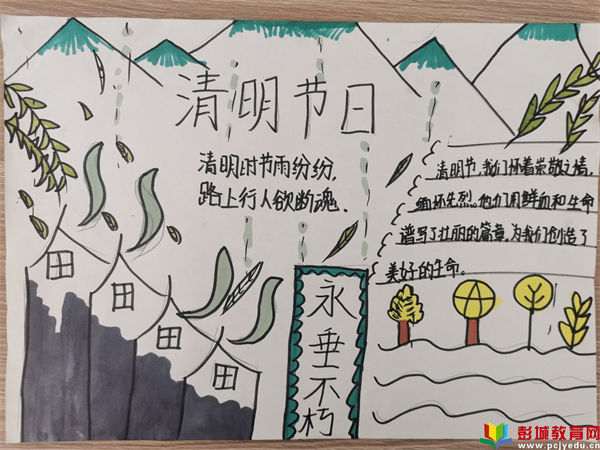 清明节日
清明时节雨纷纷,
路上行人欲断魂、
清明节,我们怀着崇敬之情,
缅怀先烈。他们用鲜血和生命
谱写了壮丽的篇章,为我们创造了
美好的生命。
永垂不朽
彭城教育网
www.pcjyedu.cn